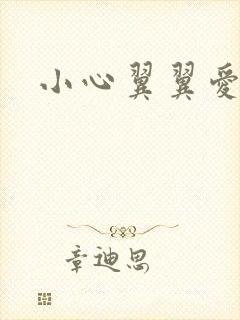 小心翼翼愛
章迪思